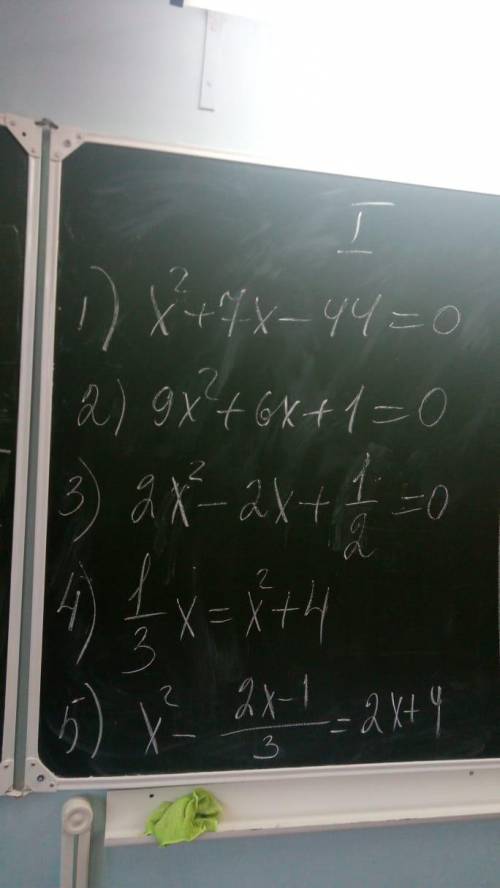 I
1) x² + 7x - 44 = 0
2) 9x² + 6x + 1 = 0
3) 2x² - 2x + 1/2 = 0
4) 1/3 x = x² + 4
5) x² - (2x-1)/3 = 2x + 4